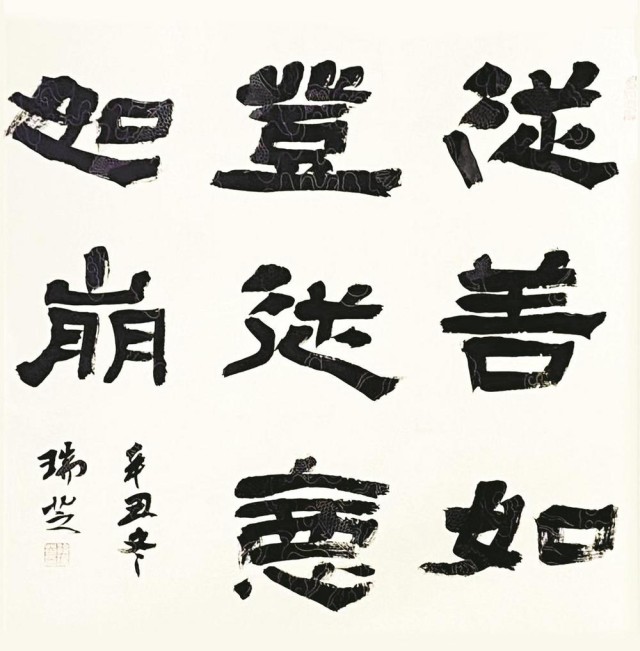 從善如
登從惡
如崩
辛丑冬
瑞芝